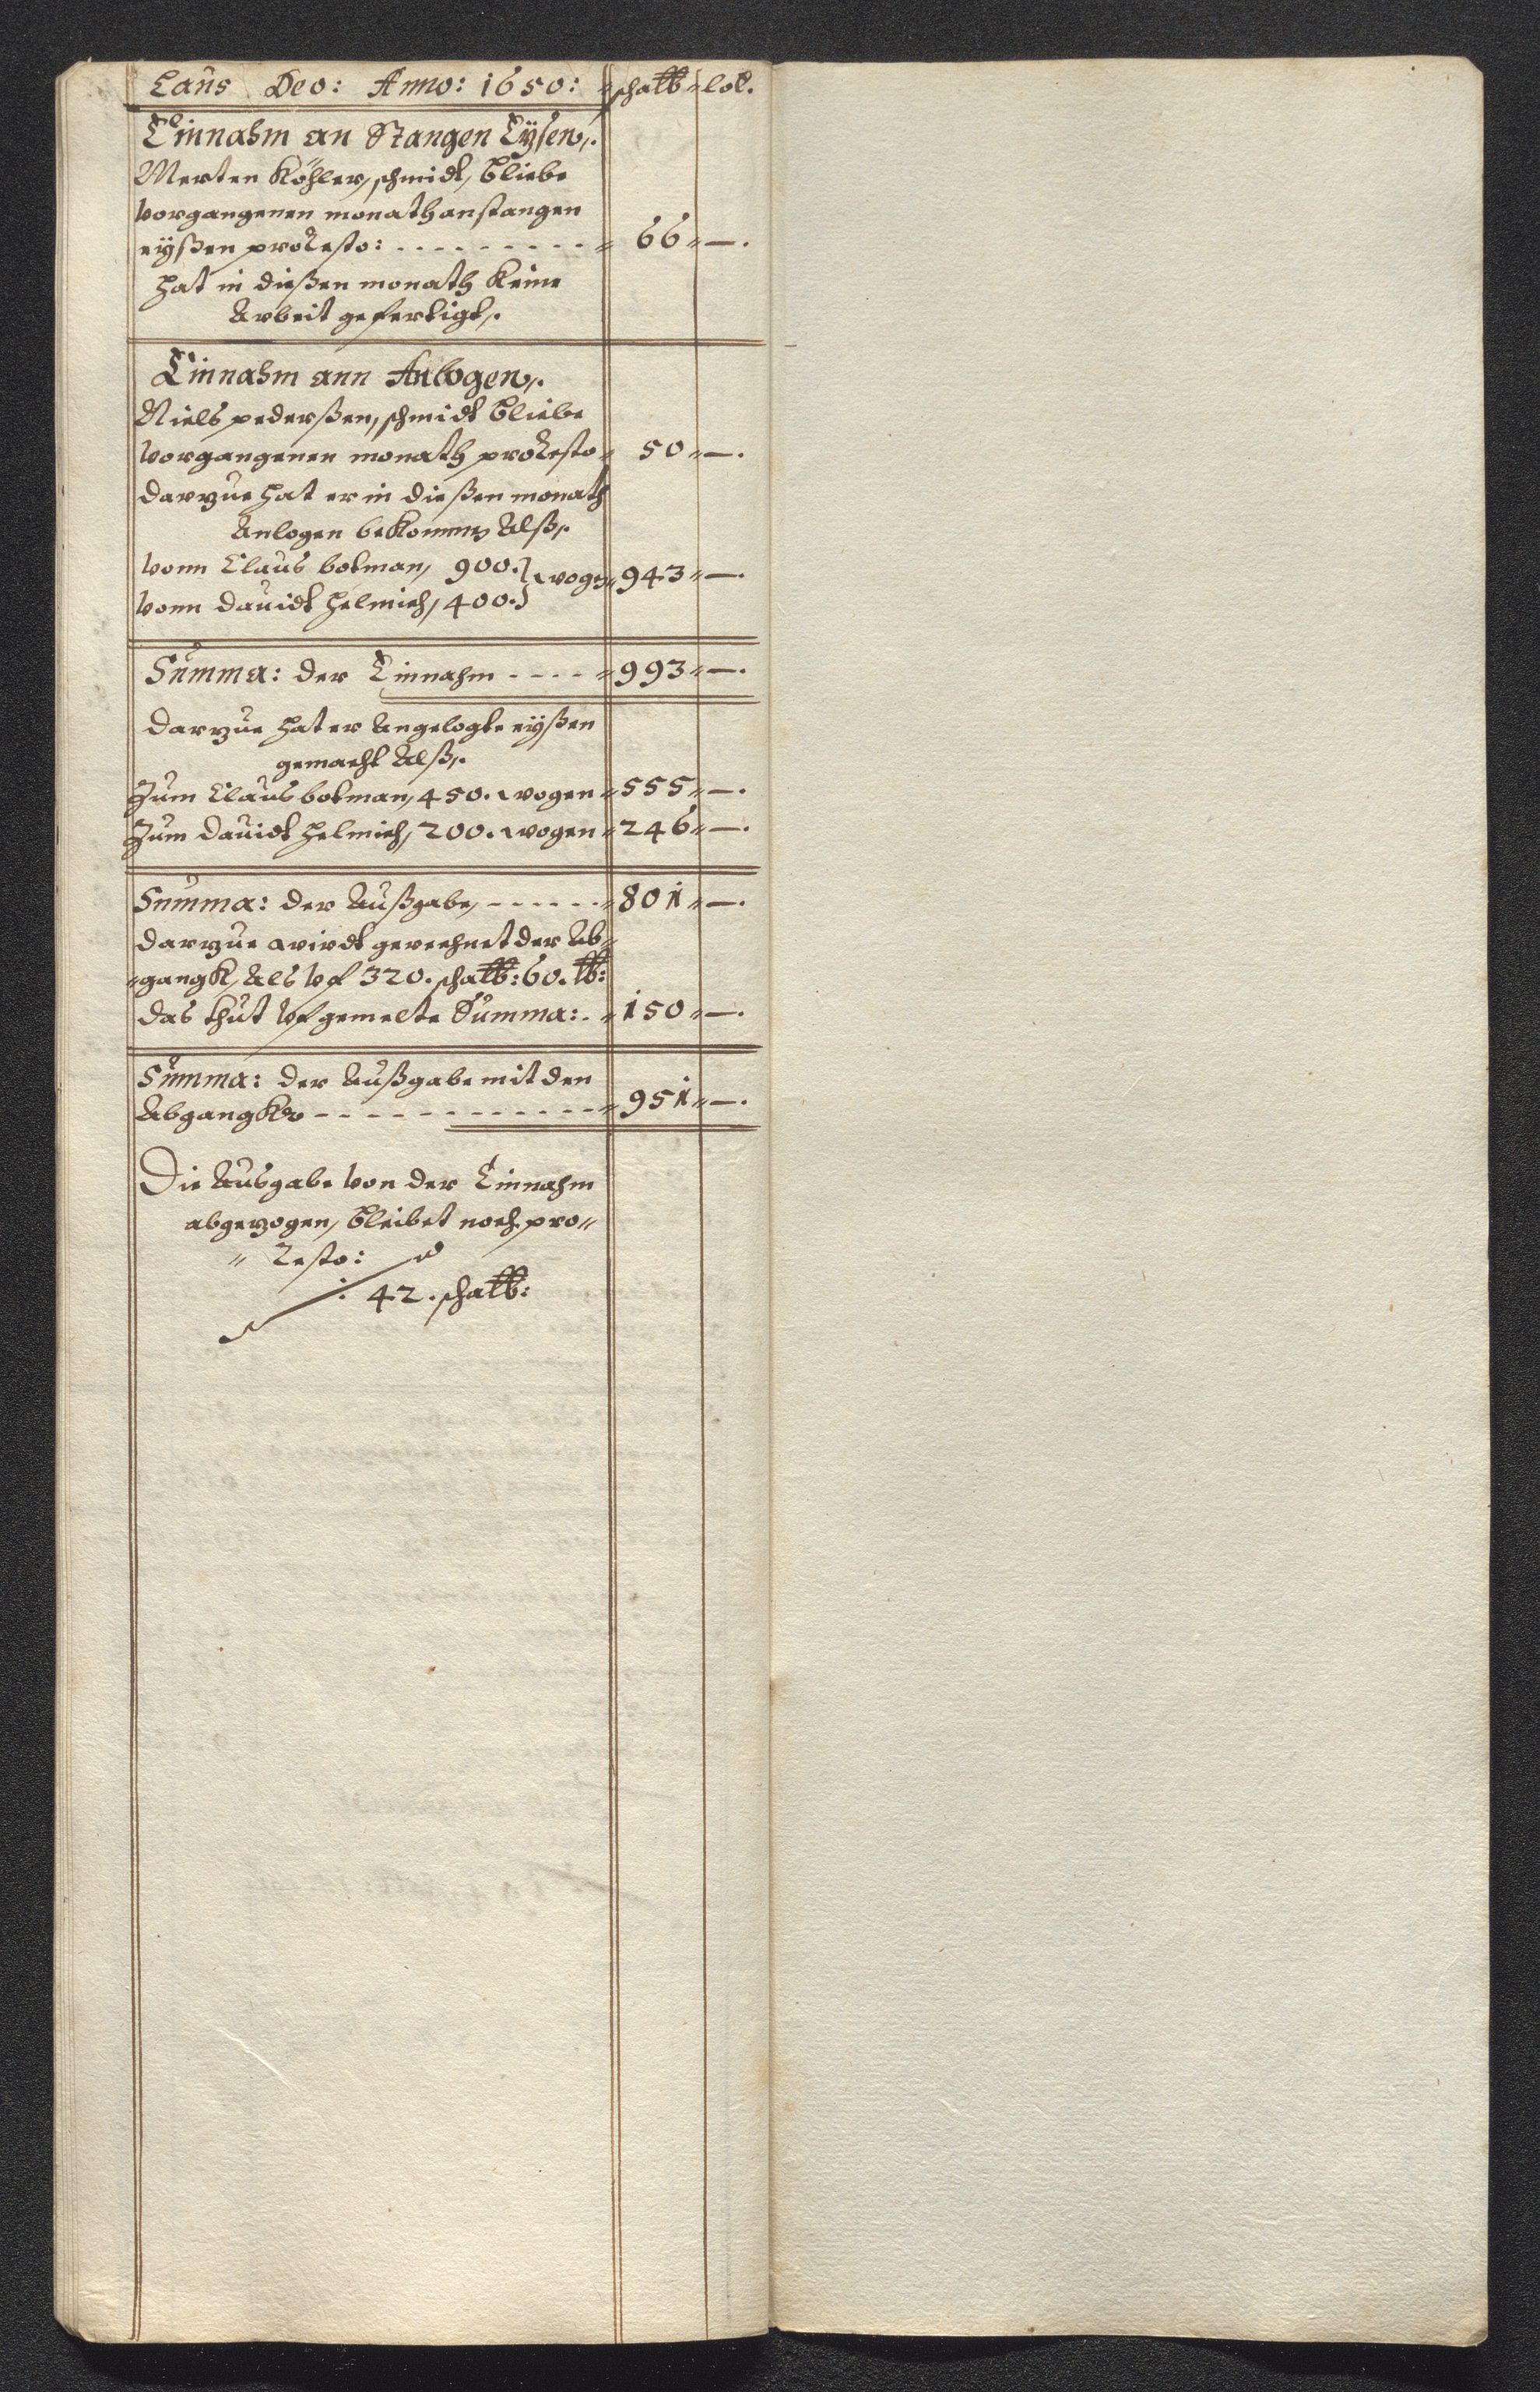 Laus Deo: Anno: 1650: schatt lot.
Einnahm an Stangen Eysen,.
Merten Köhler, schmidt, bliebe
vorgangenen monath an stangen
eyßen pro Resto: - - - - - - - - - 66 — .
hat in dießen monath keine
Arbeit gefertigt,.
Einnahm ann Anlogen,.
Niels pederßen, schmidt bliebe
vorgangenen monath pro Resto 50 — .
darzue hat er in dießen monath
Anlogen bekommen Alß,.
vonn Claus botman, 900. } wogen 943 — .
vonn dauidt helmich, 400. }
Summa: der Einnahm - - - - 993 — .
darzue hat er Angelogte eyßen
gemacht Alß,.
Zum Claus botman, 450. wogen 555 — .
Zum dauidt helmich, 200. wogen 246 — .
Summa: der Außgabe, - - - - - - 801 — .
darzue wirdt gerechnet der Ab„
„gangk, Als vf 320. schatt: 60. tb:
das thut vf gemelte Summa: . 150 — .
Summa: der Außgabe mit den
Abgangke - - - - - - - - - - - - 951 — .
Die Ausgabe von der Einnahm
abgezogen, bleibet noch pro„
„ Resto:
: 42. schatt: